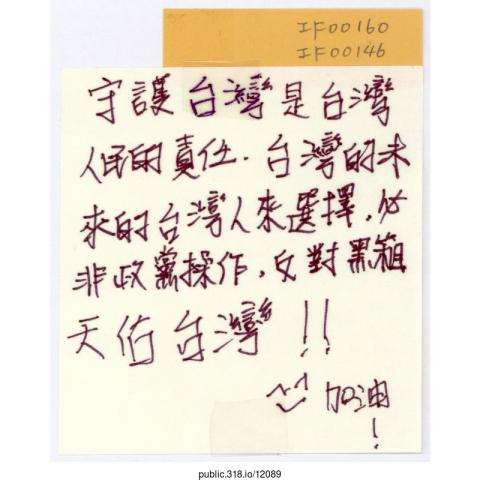 IF00160
IF00146
守護台灣是台灣
人民的責任.台灣的未
來的台灣人來選擇,
非政黨操作,反對黑箱
天佑台灣!!
加油
!
public.318.io/12089